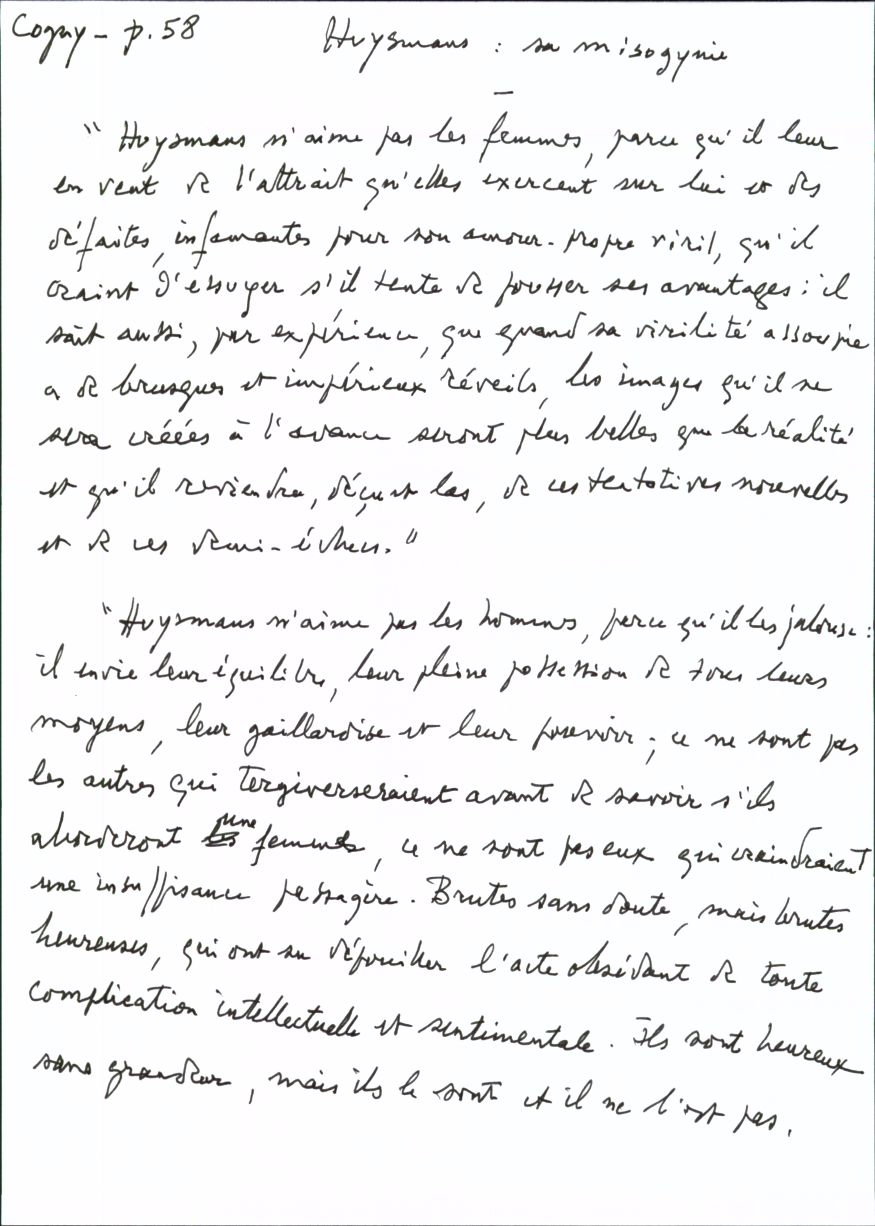 Cogny - p. 58
Huysmans : sa misogynie
—
"Huysmans n'aime pas les femmes, parce qu'il leur
en veut de l'attrait qu'elles exercent sur lui et des
défaites, infamantes pour son amour-propre viril, qu'il
craint d'essuyer s'il tente de pousser ses avantages : il
sait aussi, par expérience, que quand sa virilité assoupie
a de brusques et impérieux réveils, les images qu'il se
sera créées à l'avance seront plus belles que la réalité
et qu'il reviendra, déçu et las, de ces tentatives nouvelles
et de ces demi-échecs."
"Huysmans n'aime pas les hommes, parce qu'il les jalouse :
il envie leur équilibre, leur pleine possession de tous leurs
moyens, leur gaillardise et leur pouvoir ; ce ne sont pas
les autres qui tergiverseraient avant de savoir s'ils
aborderont une femme, ce ne sont pas eux qui craindraient
une insuffisance passagère. Brutes sans doute, mais brutes
heureuses, qui ont su dépouiller l'acte obsédant de toute
complication intellectuelle et sentimentale. Ils sont heureux
sans grandeur, mais ils le sont et il ne l'est pas.